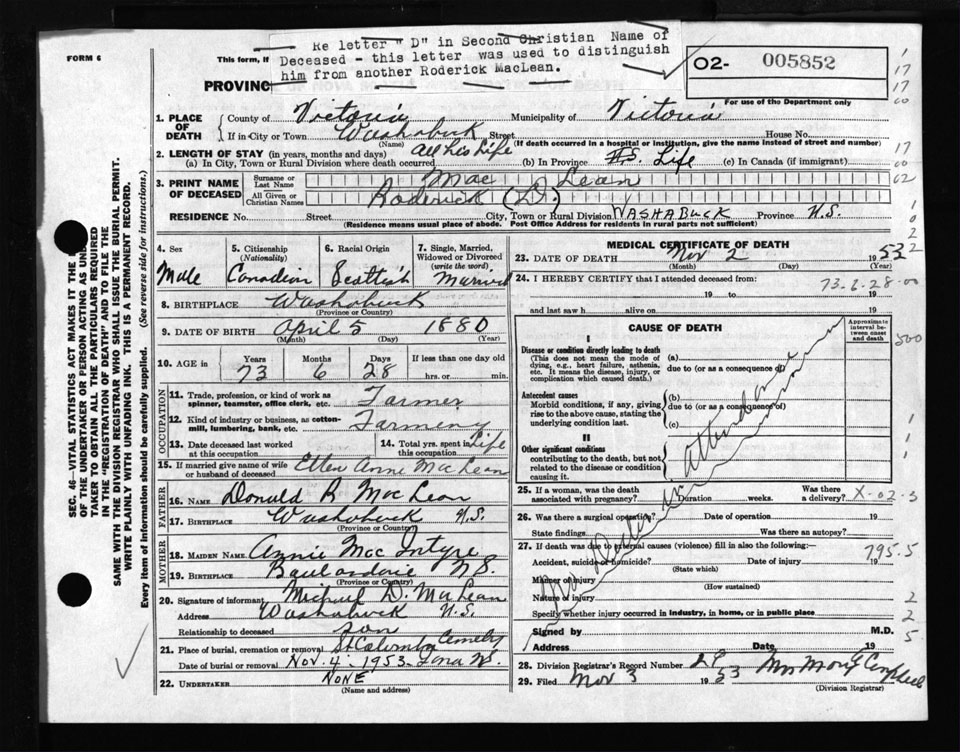 Re letter "D" in Second Christian Name of
Deceased - this letter was used to distinguish
him from another Roderick MacLean.
FORM 6
This form, if
PROVINC
02- 005852
For use of the Department only
1. PLACE OF DEATH
County of Victoria Municipality of Victoria
If in City or Town Washabuck Street House No.
(Name) (If death occurred in a hospital or institution, give the name instead of street and number)
2. LENGTH OF STAY (in years, months and days)
(a) In City, Town or Rural Division where death occurred All his Life (b) In Province N.S. Life (c) In Canada (if immigrant)
3. PRINT NAME OF DECEASED
Surname or Last Name Mac Lean
All Given or Christian Names Roderick (D.)
RESIDENCE No. Street City, Town or Rural Division WASHABUCK Province N.S.
(Residence means usual place of abode. Post Office Address for residents in rural parts not sufficient)
4. Sex Male
5. Citizenship (Nationality) Canadian
6. Racial Origin Scottish
7. Single, Married, Widowed or Divorced (write the word) Married
8. BIRTHPLACE Washabuck
(Province or Country)
9. DATE OF BIRTH April 5 1880
(Month) (Day) (Year)
10. AGE in Years 73 Months 6 Days 28 If less than one day old hrs. or min.
OCCUPATION
11. Trade, profession, or kind of work as spinner, teamster, office clerk, etc. Farmer
12. Kind of industry or business, as cotton-mill, lumbering, bank, etc. Farming
13. Date deceased last worked at this occupation
14. Total yrs. spent in this occupation Life
15. If married give name of wife or husband of deceased Ellen Anne MacLean
FATHER
16. NAME Donald R MacLean
17. BIRTHPLACE Washabuck N.S.
(Province or Country)
MOTHER
18. MAIDEN NAME Annie MacIntyre
19. BIRTHPLACE N.S.
(Province or Country)
20. Signature of informant Michael D. MacLean
Address Washabuck N.S.
Relationship to deceased son
21. Place of burial, cremation or removal St Columba Cemetery
Date of burial or removal Nov. 4 - 1953 - Iona N.S.
22. UNDERTAKER NONE
(Name and address)
MEDICAL CERTIFICATE OF DEATH
23. DATE OF DEATH Nov 2 1953
(Month) (Day) (Year)
24. I HEREBY CERTIFY that I attended deceased from: 73-6-28-00
19 to 19
and last saw h alive on 19
CAUSE OF DEATH
Approximate interval between onset and death
I
Disease or condition directly leading to death
(This does not mean the mode of dying, e.g., heart failure, asthenia, etc. It means the disease, injury, or complication which caused death.)
(a)
due to (or as a consequence of)
Antecedent causes
Morbid conditions, if any, giving rise to the above cause, stating the underlying condition last.
(b)
due to (or as a consequence of)
(c)
II
Other significant conditions
contributing to the death, but not related to the disease or condition causing it.
No attendance
25. If a woman, was the death associated with pregnancy? Duration weeks. Was there a delivery?
X-02-3
26. Was there a surgical operation? Date of operation 19
State findings Was there an autopsy?
27. If death was due to external causes (violence) fill in also the following:-
795.5
Accident, suicide or homicide? Date of injury 19
(State which)
Manner of injury
(How sustained)
Nature of injury
Specify whether injury occurred in industry, in home, or in public place
Signed by M.D.
Address Date 19
28. Division Registrar's Record Number
29. Filed Nov 3 1953 Campbell
(Division Registrar)
SEC. 46—VITAL STATISTICS ACT MAKES IT THE
OF THE UNDERTAKER OR PERSON ACTING AS UN
TAKER TO OBTAIN ALL THE PARTICULARS REQUIRED
IN THE "REGISTRATION OF DEATH" AND TO FILE THE
SAME WITH THE DIVISION REGISTRAR WHO SHALL ISSUE THE BURIAL PERMIT.
WRITE PLAINLY WITH UNFADING INK. THIS IS A PERMANENT RECORD.
Every item of information should be carefully supplied. (See reverse side for instructions.)
17
17
00
17
00
02
1
0
2
2
500
1
1
1
2
2
5